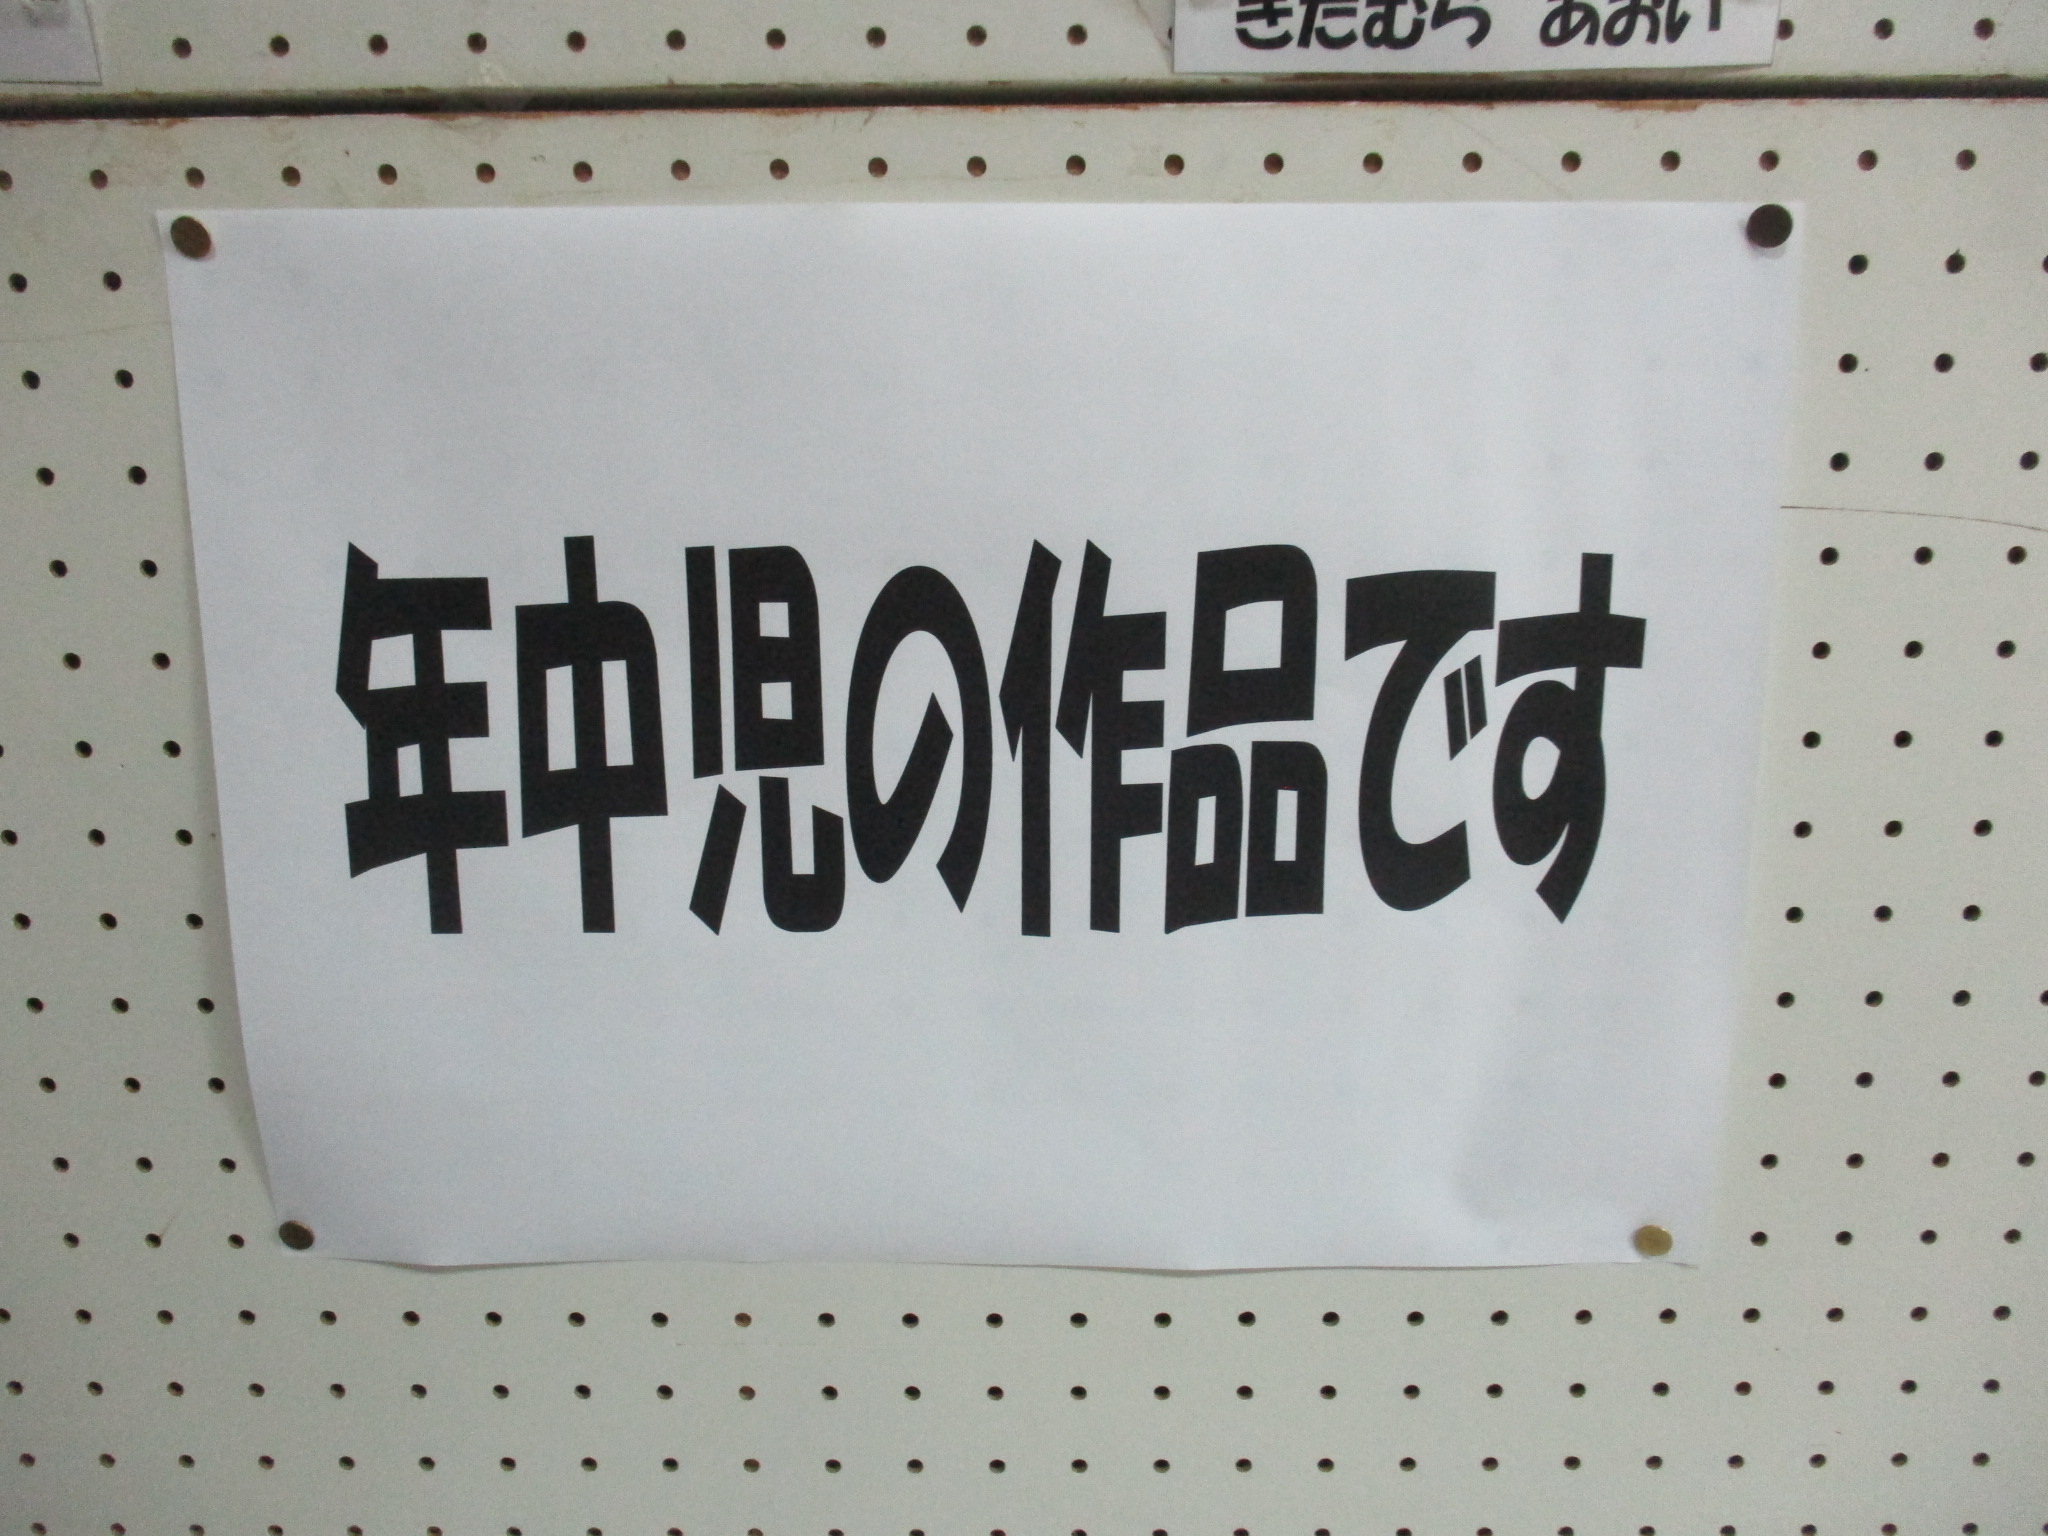 きたむら　あおい
年中児の作品です